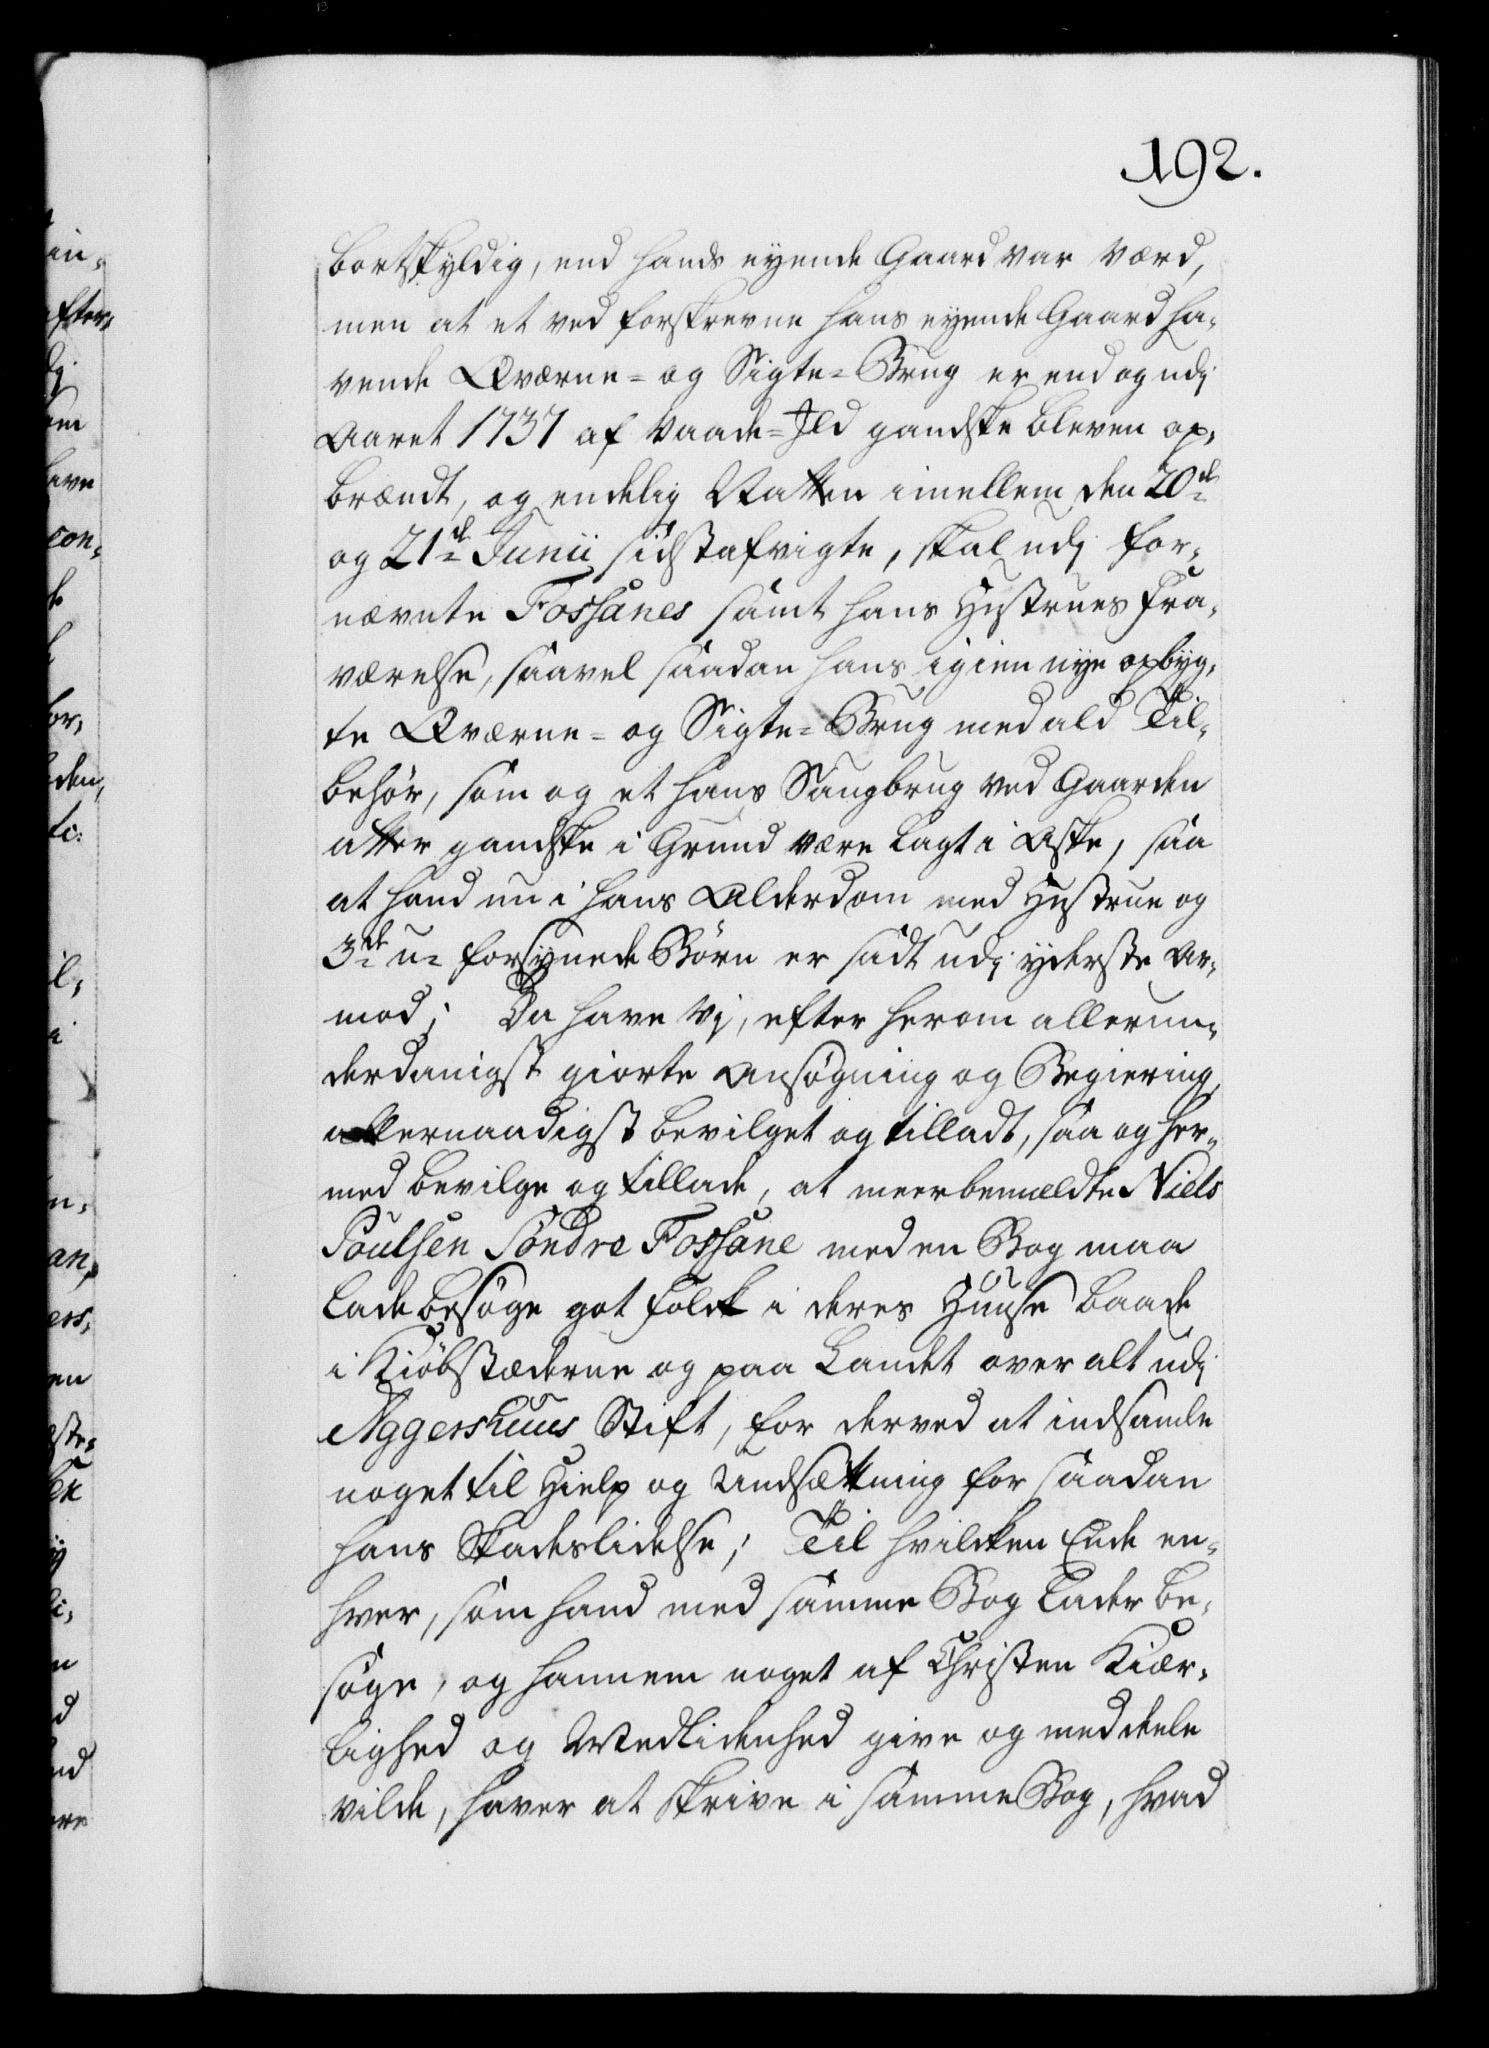 192.
bortskyldig, end hands eyende Gaard var værd,
men at et ved forskrevne hans eyende Gaard ha-
vende Qværne- og Sigte-Brug er end og udj
Aaret 1737 af Vaade-Ild gandske bleven op-
brændt, og endelig Natten imellem den 20de
og 21de Junii sidstafvigte, skal udj for-
nævnte Fossanes samt hans Hustrues Fra-
værelse, saavel saadan hans igien nye opbyg-
te Qværne- og Sigte-Brug med ald Til-
behør, som og et hans Saugbrug ved Gaarden
atter gandske i Grund være lagt i Aske, saa
at hand nu i hans Alderdom med Hustrue og
3de u- forsynede Børn er sadt udj yderste Ar-
mod; Da have Vj, efter herom allerun-
derdanigst giorte Ansøgning og Begiering,
allernaadigst bevilget og tilladt, saa og her-
med bevilge og tillade, at meerbemældte Niels
Poulsen Søndre Fossane med en Bog maa
lade besøge got Folck i deres Huuse baade
i Kiøbstæderne og paa Landet over alt udj
Aggershuus Stift, for derved at indsamle
noget til Hielp og Undsætning for saadan
hans Skadeslidelse; Til hvilcken Ende en-
hver, som hand med samme Bog lader be-
søge, og hannem noget af Christen Kiær-
lighed og Medlidenhed give og meddeele
vilde, haver at skrive i samme Bog, hvad